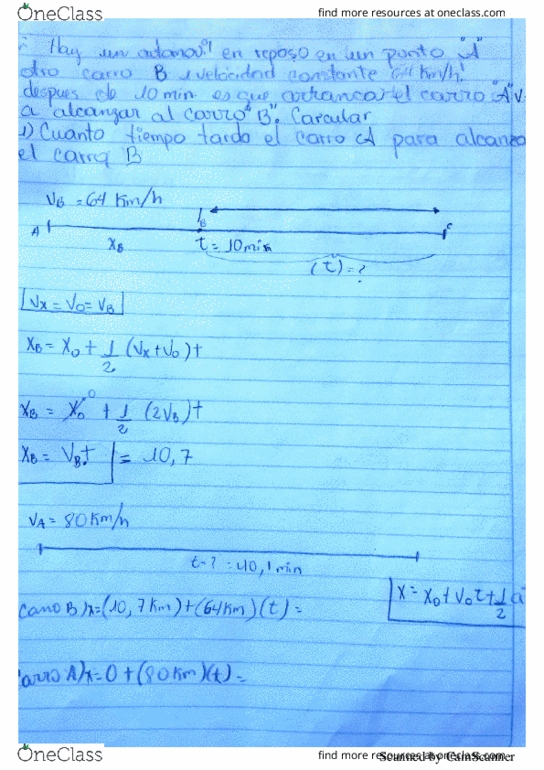 OneClass
find more resources at oneclass.com
Hay un automovil en reposo en un punto "A"
otro carro B velocidad constante 64 Km/h.
despues de 10 min es que arranca el carro "A" v
a alcanzar al carro "B". Carcular
1) Cuanto tiempo tardo el carro A para alcanza
el carro B
VB = 64 Km/h
A B C
XB t = 10 min
(t) = ?
Vx = V0 = VB
XB = X0 + 1/2 (Vx + V0) t
XB = X0 0 + 1/2 (2VB) t
XB = VB.t = 10,7
VA = 80 Km/h
t-? = 40,1 min
X = X0 + V0 t + 1/2 a
carro B) x = (10,7 Km) + (64 Km) (t) =
arro A) x = 0 + (80 Km) (t) =
OneClass
find more resources at oneclass.com
Scanned by CamScanner